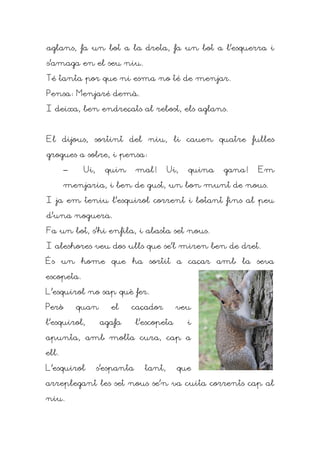 aglans, fa un bot a la dreta, fa un bot a l'esquerra i
s'amaga en el seu niu.
Té tanta por que ni esma no té de menjar.
Pensa: Menjaré demà.
I deixa, ben endreçats al rebost, els aglans.
El dijous, sortint del niu, li cauen quatre fulles
grogues a sobre, i pensa:
– Ui, quin mal! Ui, quina gana! Em
menjaria, i ben de gust, un bon munt de nous.
I ja em teniu l'esquirol corrent i botant fins al peu
d'una noguera.
Fa un bot, s'hi enfila, i abasta set nous.
I aleshores veu dos ulls que se'l miren ben de dret.
És un home que ha sortit a caçar amb la seva
escopeta.
L'esquirol no sap què fer.
Però quan el caçador veu
l'esquirol, agafa l'escopeta i
apunta, amb molta cura, cap a
ell.
L'esquirol s'espanta tant, que
arreplegant les set nous se'n va cuita corrents cap al
niu.